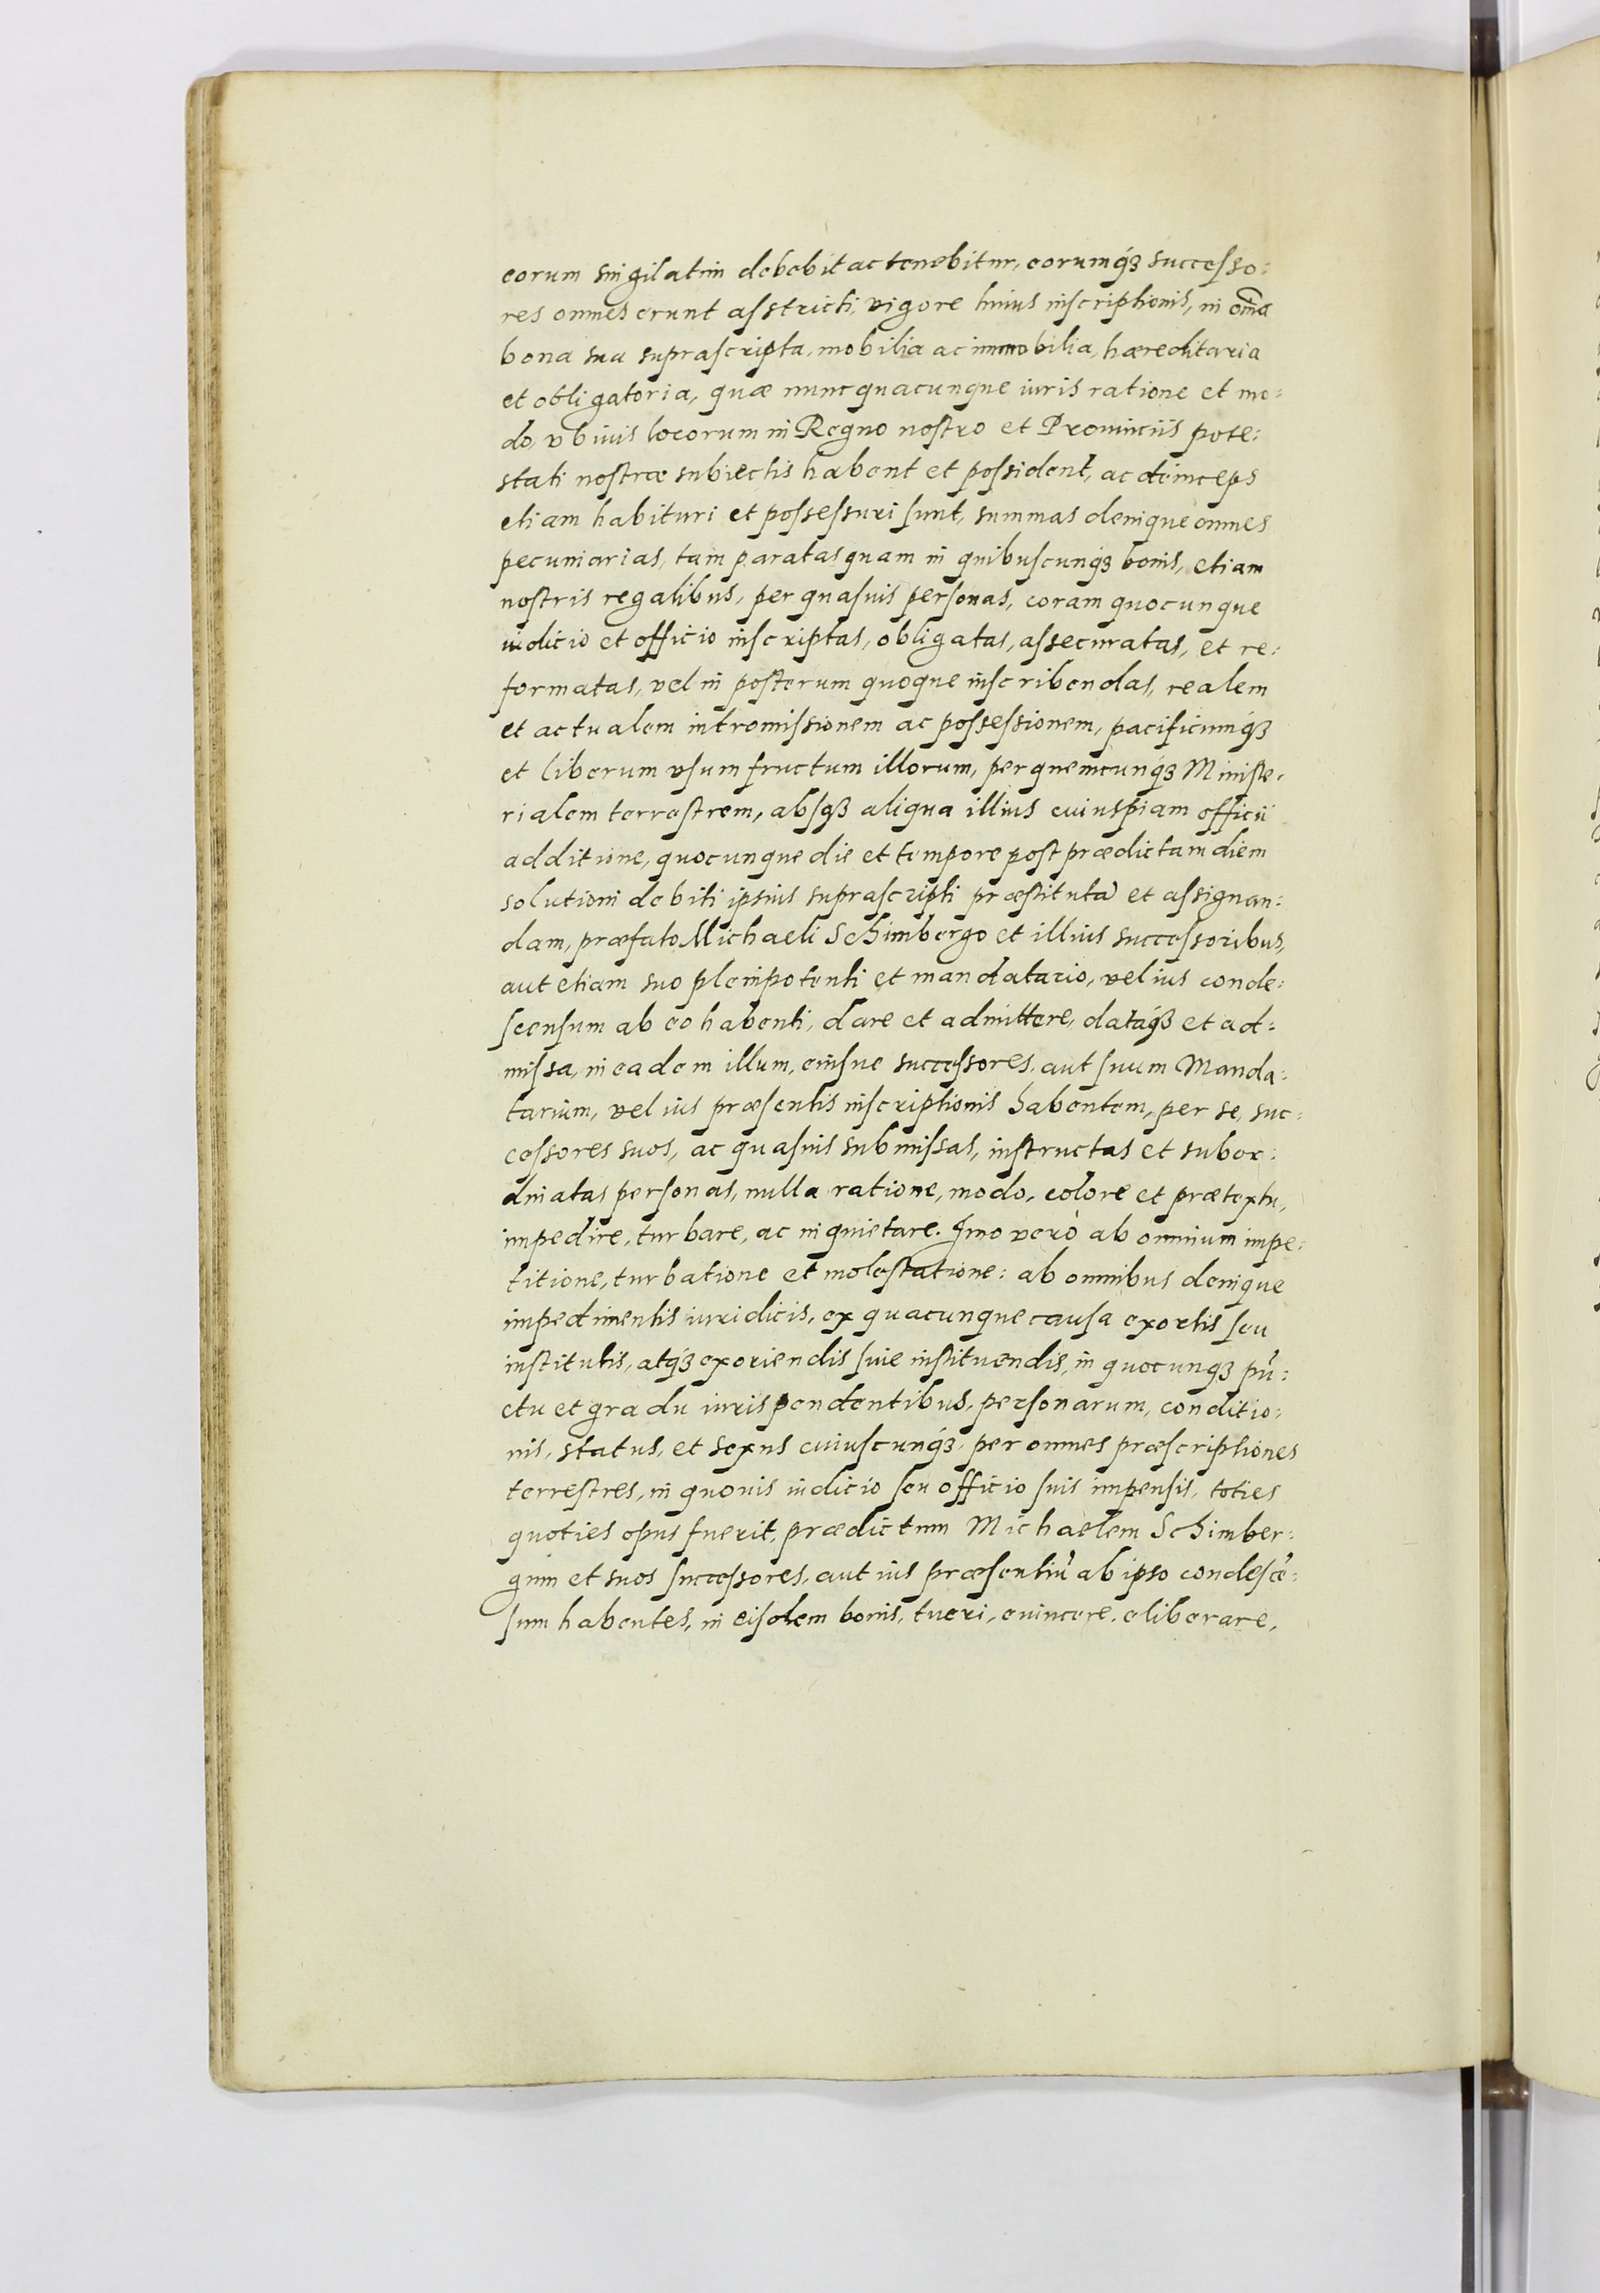 eorum singilatim debebit ac tenebitur, eorumq́ꝫ successo:
res omnes erunt asstricti, vigore huius inscriptionis, in om̃a
bona sua suprascripta, mobilia ac immobilia, hæreditaria
et obligatoria, quæ nunc quacunque iuris ratione et mo:
do, vbiuis locorum in Regno nostro et Prouinciis pote:
stati nostræ subiectis habent et possident, ac deinceps
etiam habituri et possessuri sunt, summas denique omnes
pecuniarias, tam paratas quam in quibuscunq́ꝫ bonis, etiam
nostris regalibus, per quasuis personas, coram quocunque
iudicio et officio inscriptas, obligatas, assecuratas, et re:
formatas, vel in posterum quoque inscribendas, realem
et actualem intromissionem ac possessionem, pacificumq́ꝫ
et liberum vsumfructum illorum, per quemcunq́ꝫ Ministe:
rialem terrestrem, absqꝫ aliqua illius cuiuspiam officii
additione, quocunque die et tempore post prædictam diem
solutioni debiti ipsius suprascripti præstitutã et assignan:
dam, præfato Michaeli Schimbergo et illius successoribus,
aut etiam suo plenipotenti et mandatario, vel ius conde:
scensum ab eo habenti, dare et admittere, dataq́ꝫ et ad:
missa, in eadem illum, eiusue successores, aut suum Manda:
tarium, vel ius præsentis inscriptionis habentem, per se, suc:
cessores suos, ac quasuis submissas, instructas et subor:
dinatas personas, nulla ratione, modo, colore et prætextu,
impedire, turbare, ac inquietare. Imo verò ab omnium impe:
titione, turbatione et molestatione: ab omnibus denique
impedimentis iuridicis, ex quacunque causa exortis seu
institutis, atq́ꝫ exoriendis siue instituendis, in quocunqꝫ pũ:
ctu et gradu iuris pendentibus, personarum, conditio:
nis, status, et sexus cuiuscunq́ꝫ, per omnes præscriptiones
terrestres, in quouis iudicio seu officio suis impensis, toties
quoties opus fuerit, prædictum Michaelem Schimber:
gum et suos successores, aut ius præsentiũ ab ipso condescẽ:
sum habentes, in eisdem bonis, tueri, euincere, eliberare,